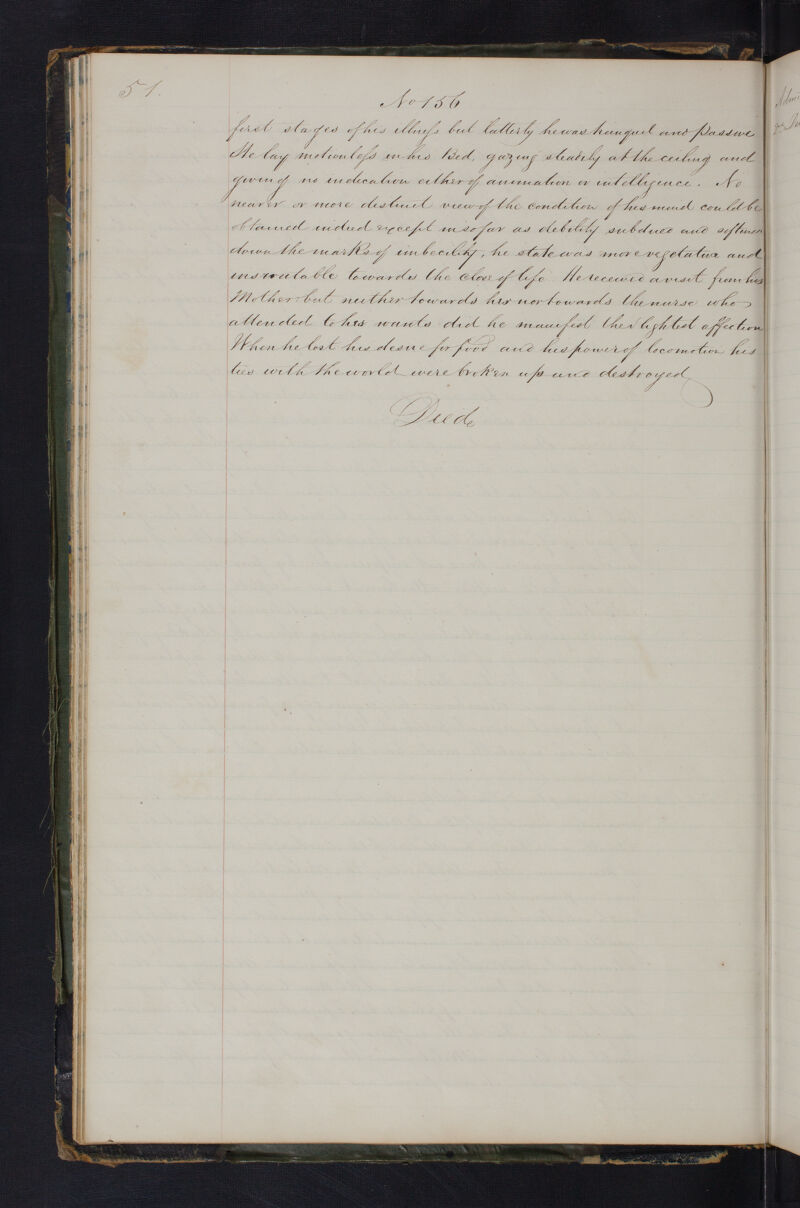 51.
No 156
first stages of his illness but latterly he was tranquil and passive
He lay motionless in his Bed, gazing steadily at the ceiling and
giving no indication either of animation or intelligence. No
nearer or more distinct view of the condition of his mind could be
obtained indeed except in so far as debility subdued and softened
down the marks of imbecility, he state was more vegetative and
inscrutable towards the close of life He received a visit from his
Mother but neither towards her nor towards the nurse who
attended to his wants did he manifest the slightest affection
When he lost his desire for food and his power of locomotion his
ties with the world were broken up and destroyed
Died